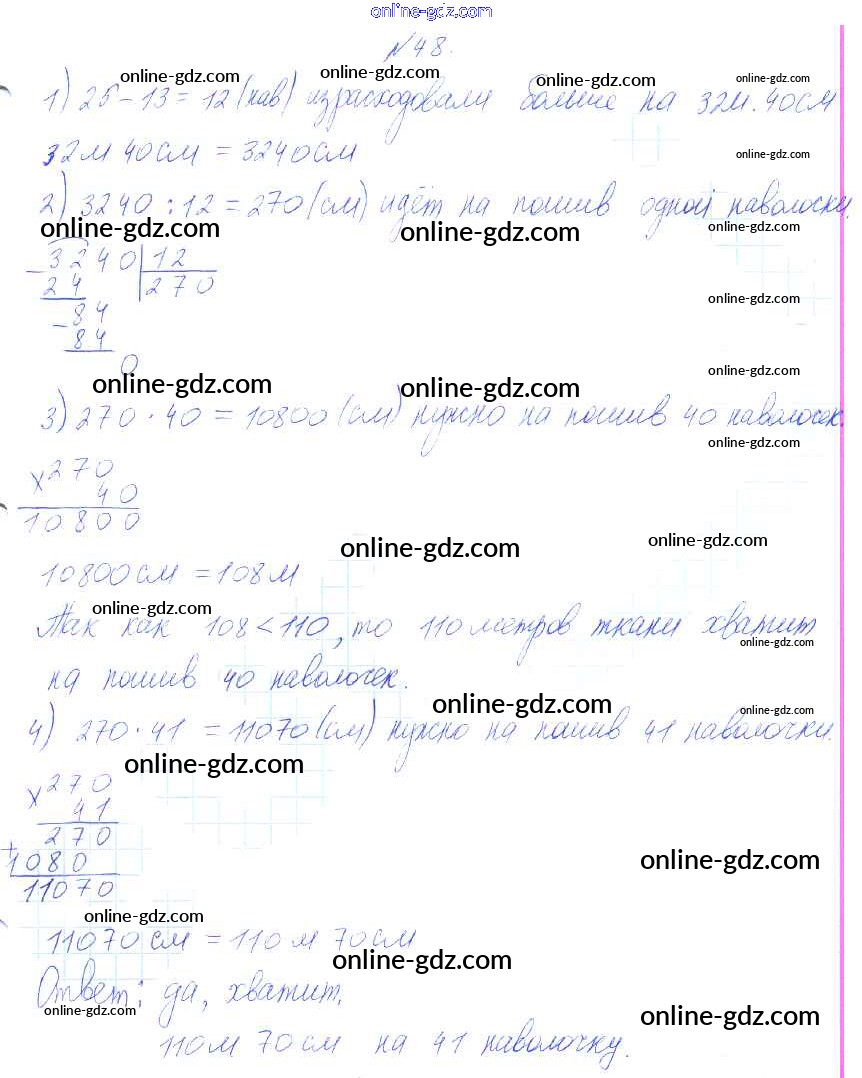 online-gdz.com
№48.
online-gdz.com online-gdz.com online-gdz.com online-gdz.com
1) 25-13=12 (нав) израсходовали больше на 32м. 40см
32м 40см = 3240см
online-gdz.com
2) 3240:12=270 (см) идёт на пошив одной наволочки.
online-gdz.com online-gdz.com online-gdz.com
-3240 12
24 270
online-gdz.com
-84
84
0
online-gdz.com
online-gdz.com online-gdz.com
3) 270·40=10800 (см) нужно на пошив 40 наволочек.
online-gdz.com
х270
40
10800
online-gdz.com online-gdz.com
10800см =108м
online-gdz.com
Так как 108<110, то 110 метров ткани хватит
online-gdz.com
на пошив 40 наволочек.
online-gdz.com online-gdz.com
4) 270·41 =11070 (см) нужно на пошив 41 наволочки.
online-gdz.com
х270
41
+270
1080
11070
online-gdz.com
online-gdz.com
11070см =110м 70см
online-gdz.com
Ответ: да, хватит,
online-gdz.com online-gdz.com
110м 70см на 41 наволочку.